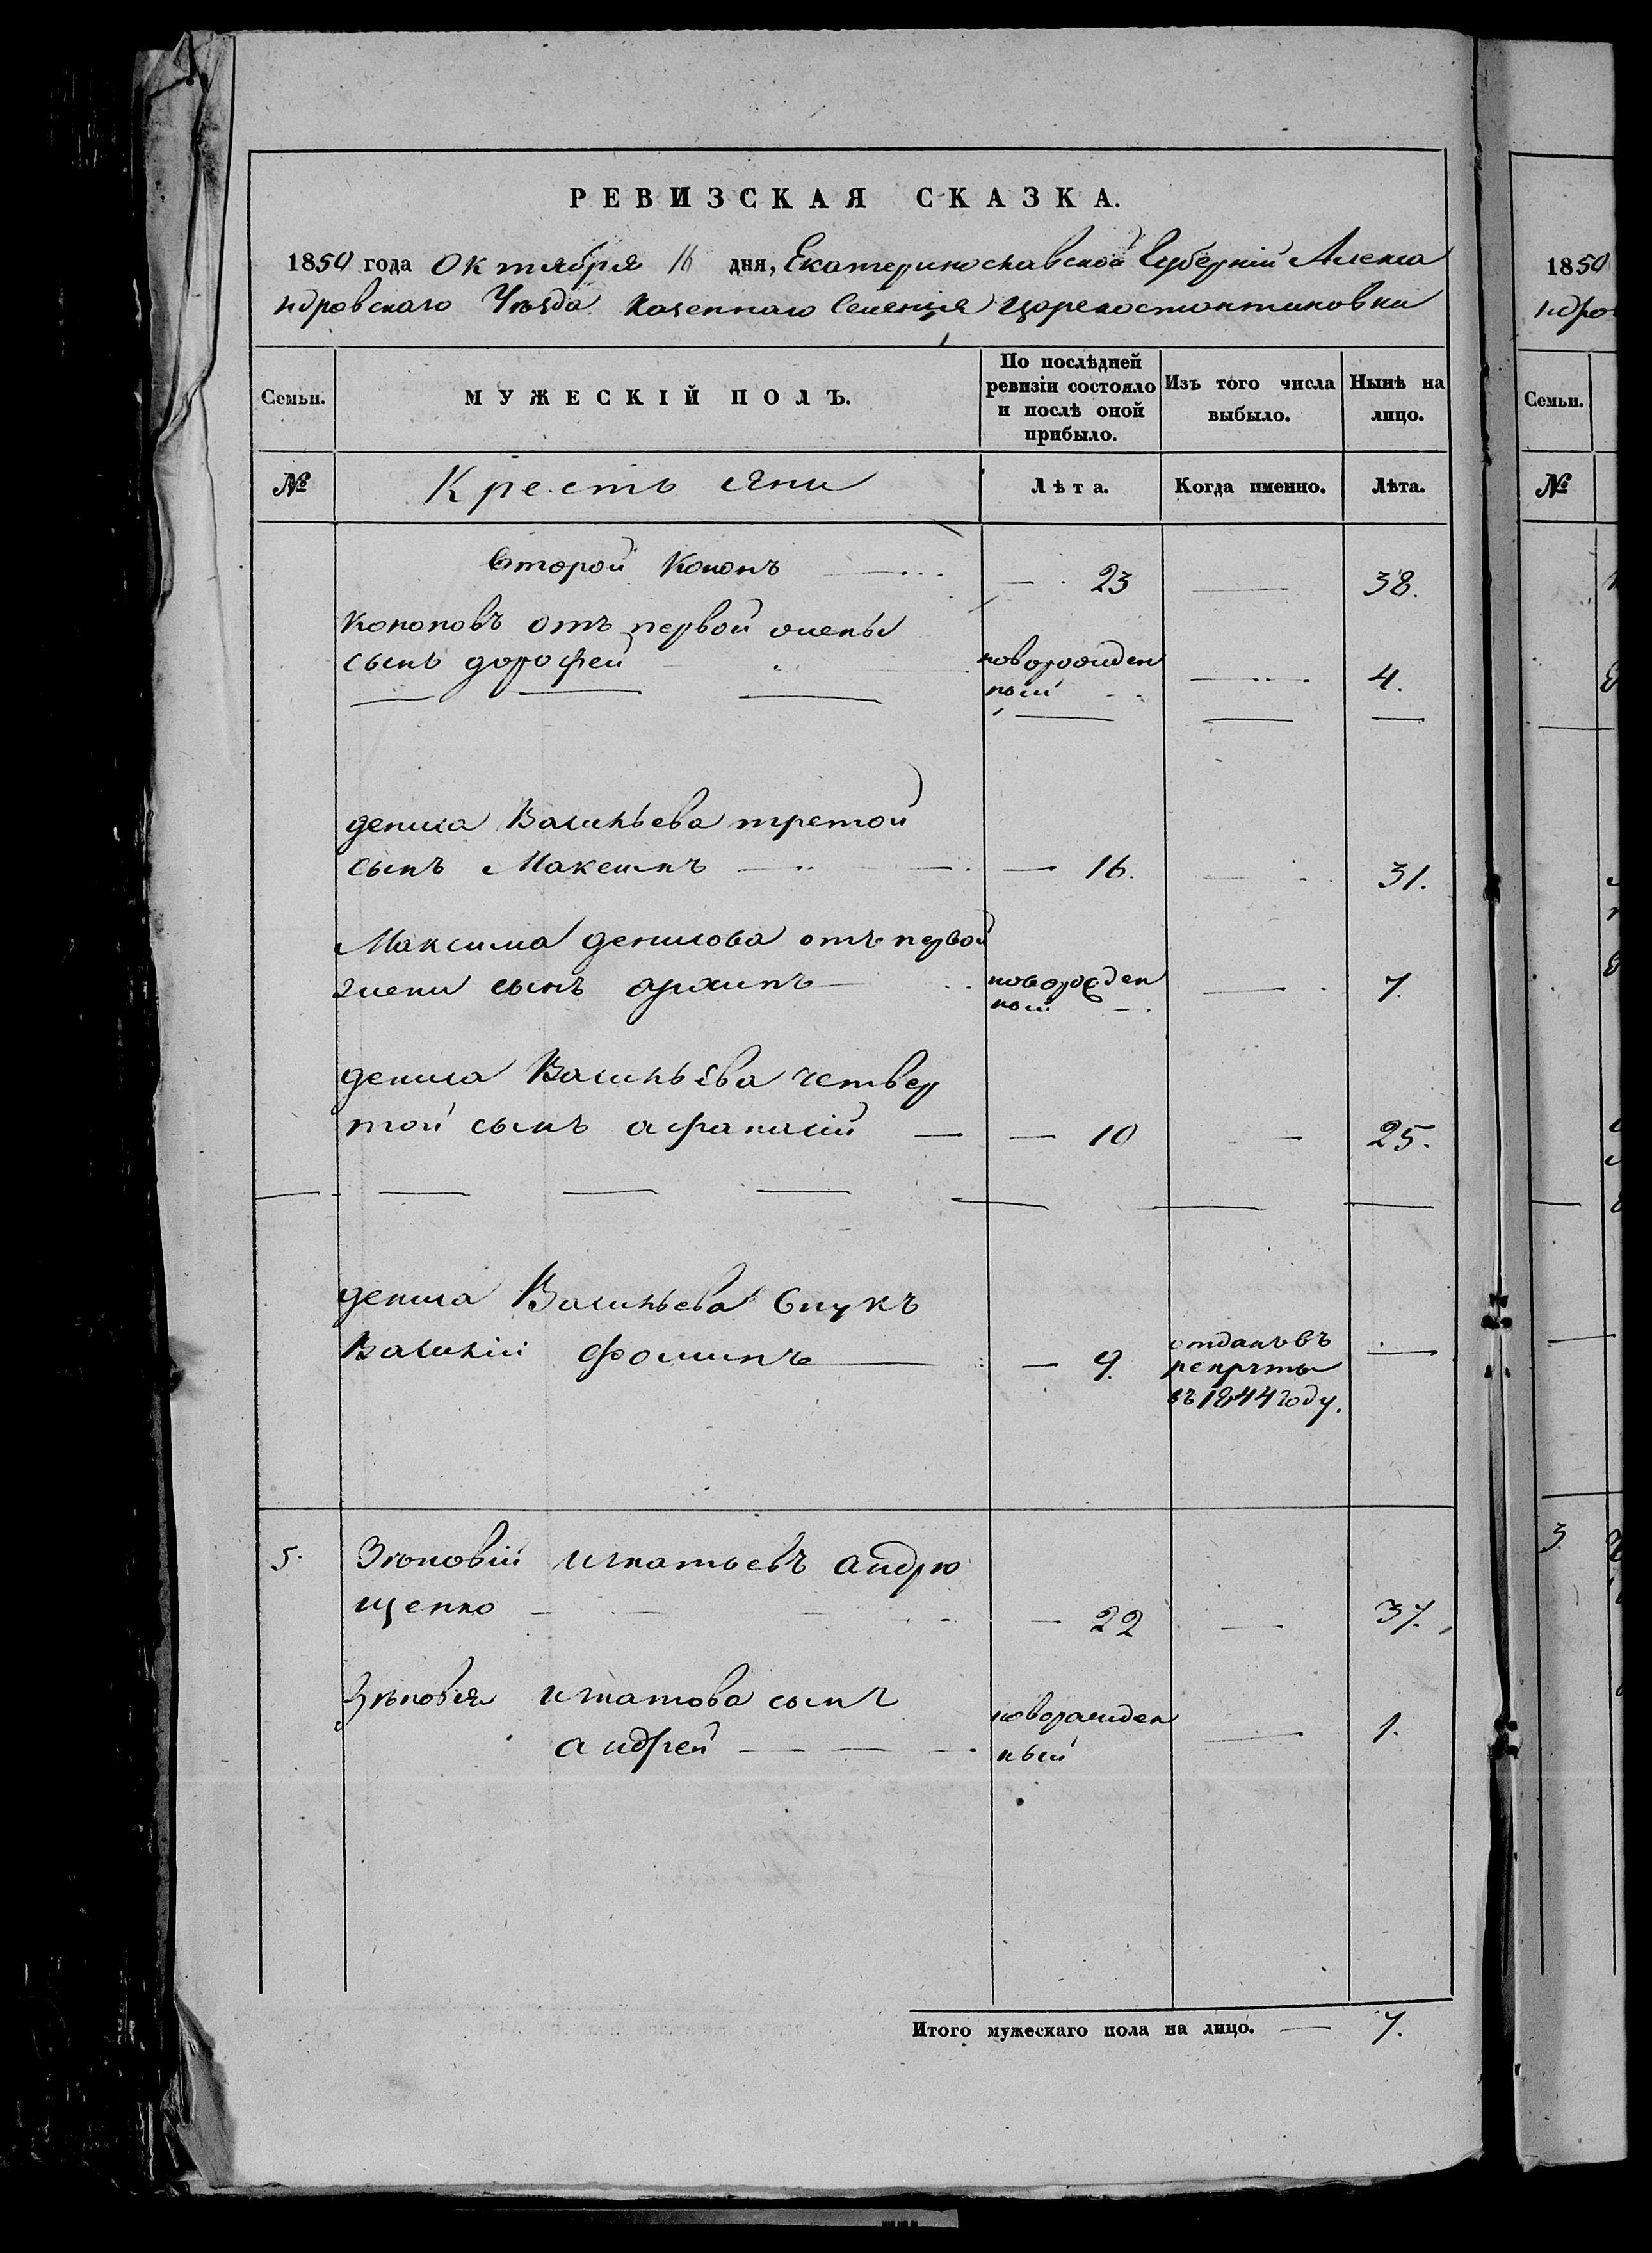 РЕВИЗСКАЯ СКАЗКА.
1850 года Октября 16 дня, Екатеринославской Губерніи Алекса
ндровскаго Уѣзда Казеннаго Селенія Цареконстантиновки
Семьи. МУЖЕСКІЙ ПОЛЪ. По послѣдней ревизіи состояло и послѣ оной прибыло. Изъ того числа выбыло. Нынѣ на лицо.
№ Крестьяни Лѣта. Когда именно. Лѣта.
второй Кононъ 23 38.
Кононовъ отъ первой жены
сынъ дорофей новорожден
ный 4.
дениса Васильева третой
сынъ Максимъ 16. 31.
Максима денисова отъ первой
жени сынъ архипъ новорожден
ный 7.
дениса Васильева четвер
той сынъ афанасій 10 25.
дениса Васильева внукъ
Василій Фоминъ 9. отданъ въ
рекруты
въ 1844 году.
5. Зѣновій игнатьевъ андрю
щенко 22 37.
Зѣновія игнатова сынъ
андрей новорожден
ный 1.
Итого мужескаго пола на лицо. 7.
1850
ндров
Семьи.
№
3